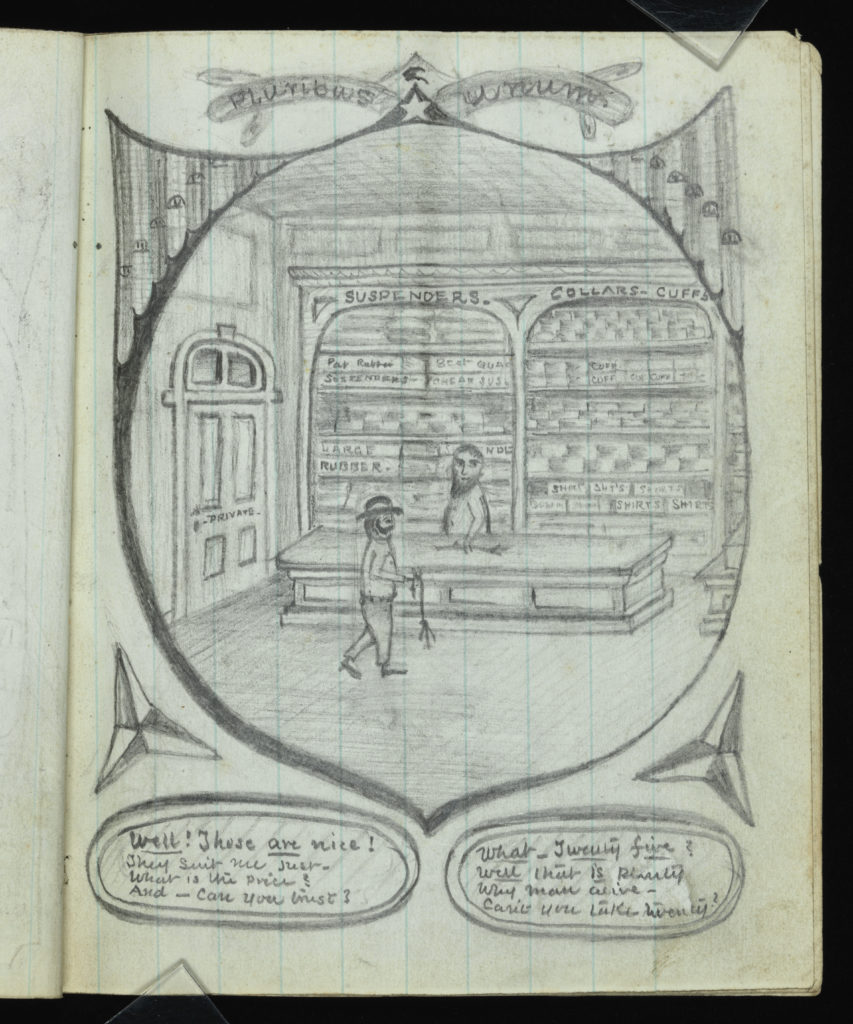 E
Pluribus unum.
SUSPENDERS.
COLLARS - CUFFS
Pat Rubber Best QUA
SUSPENDERS - CHEAP SUS
CUFF
CUFF CUFF
LARGE
RUBBER.
SHIRTS
SHIRTS SHIRTS
-PRIVATE-
Well! Those are nice!
They suit me just-
What is the price?
And - Can you trust?
What - Twenty five?
Well that is plenty
Why man alive -
Can't you take twenty?